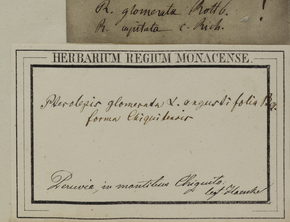 R. glomerata Rottb.
R. capitata c. Rich.
HERBARIUM REGIUM MONACENSE.
Pterolepis glomerata L. angustifolia
forma Chiquitensis
Peruvia, in montibus Chiquito.
legt Haenke